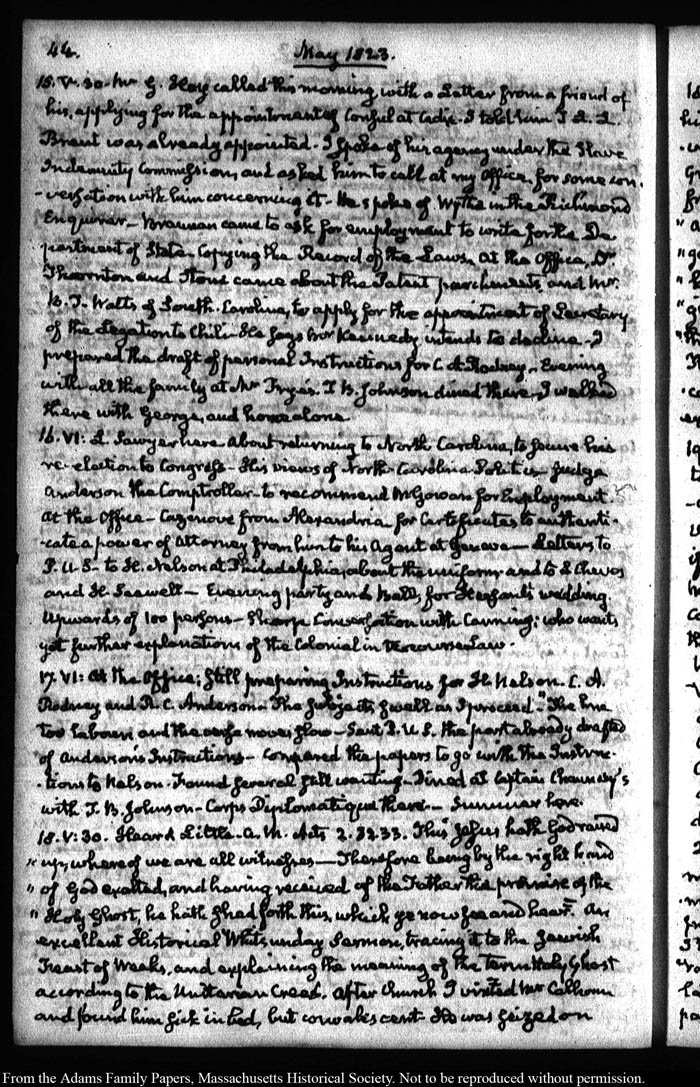 44.
May 1823.
15. V. 30. Mr G. Hay called this morning with a Letter from a friend of
his, applying for the appointment of Consul at Cadiz. I told him J. L. L.
Brent was already appointed. I spoke of his agency under the Slave
Indemnity Commission, and asked him to call at my Office, for some con-
-versation with him concerning it. He spoke of Wythe in the Richmond
Enquirer— Brannan came to ask for employment to write for the De
partment of State. Copying the Record of the Laws. At the Office, Dr
Thornton and Stone came about the Patent parchments, and Mr
B. J. Watts of South-Carolina, to apply for the appointment of Secretary
of the Legation to Chili. He says Mr Kennedy intends to decline. I
prepared the draft of personal Instructions for C. A. Rodney. Evening
with all the family at Mr Frye's. T. B. Johnson dined there. I walked
there with George, and home alone.
16. VI: L. Sawyer here about returning to North Carolina, to secure his
re-election to Congress. His views of North-Carolina Politics. Judge
Anderson the Comptroller to recommend McGowan for Employment.
At the Office— Cazenove from Alexandria for Certificates to authenti-
-cate a power of Attorney from him to his Agent at Geneva— Letters to
P. U. S. to H. Nelson at Philadelphia, about the uniform and to L Cheves
and H. Seawell— Evening party and Ball, for wedding.
Upwards of 100 persons— Sharp Conversation with Canning; who wants
yet further explanations of the Colonial intercourse Law.
17. VI: At the Office; still preparing Instructions for H. Nelson. C. A.
Rodney and R. C. Anderson. The subjects swell as I proceed. "The line
too labours and the verse moves slow— Sent P. U. S. the part already drafted
of Anderson's Instructions— Compared the papers to go with the Instruc-
-tions to Nelson. Found several still wanting. Dined at Captain Chauncey's
with T. B. Johnson. Corps Diplomatique there— Summer here.
18. V: 30. Heard Little. A. M. Acts 2. 32. 33. This Jesus hath God raised
" up, whereof we are all witnesses— Therefore being by the right hand
" of God exalted, and having received of the Father the promise of the
" Holy Ghost, he hath shed forth this, which ye now see and hear". An
excellent Historical Whitsunday Sermon, tracing it to the Jewish
Feast of Weeks, and explaining the meaning of the term Holy Ghost
according to the Unitarian Creed. After Church I visited Mr Calhoun
and found him sick in bed, but convalescent. He was seized on
From the Adams Family Papers, Massachusetts Historical Society. Not to be reproduced without permission.